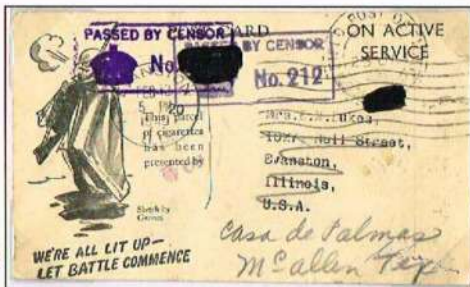 PASSED BY CENSOR
No.
CARD
PASSED BY CENSOR
No. 212
ON ACTIVE
SERVICE
This parcel
of cigarettes
has been
presented by
Sketch by
WE'RE ALL LIT UP—
LET BATTLE COMMENCE
Street,
Evanston,
Illinois,
U.S.A.
Casa de Palmas
McAllen Tex